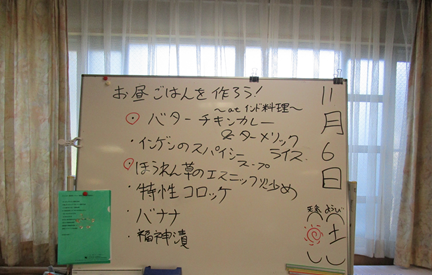 お昼ごはんを作ろう!
〜at インド料理〜
・バターチキンカレー
&ターメリックライス
・インゲンのスパイシースープ
・ほうれん草のエスニック炒め
・特性コロッケ
・バナナ
・福神漬
11月6日
土